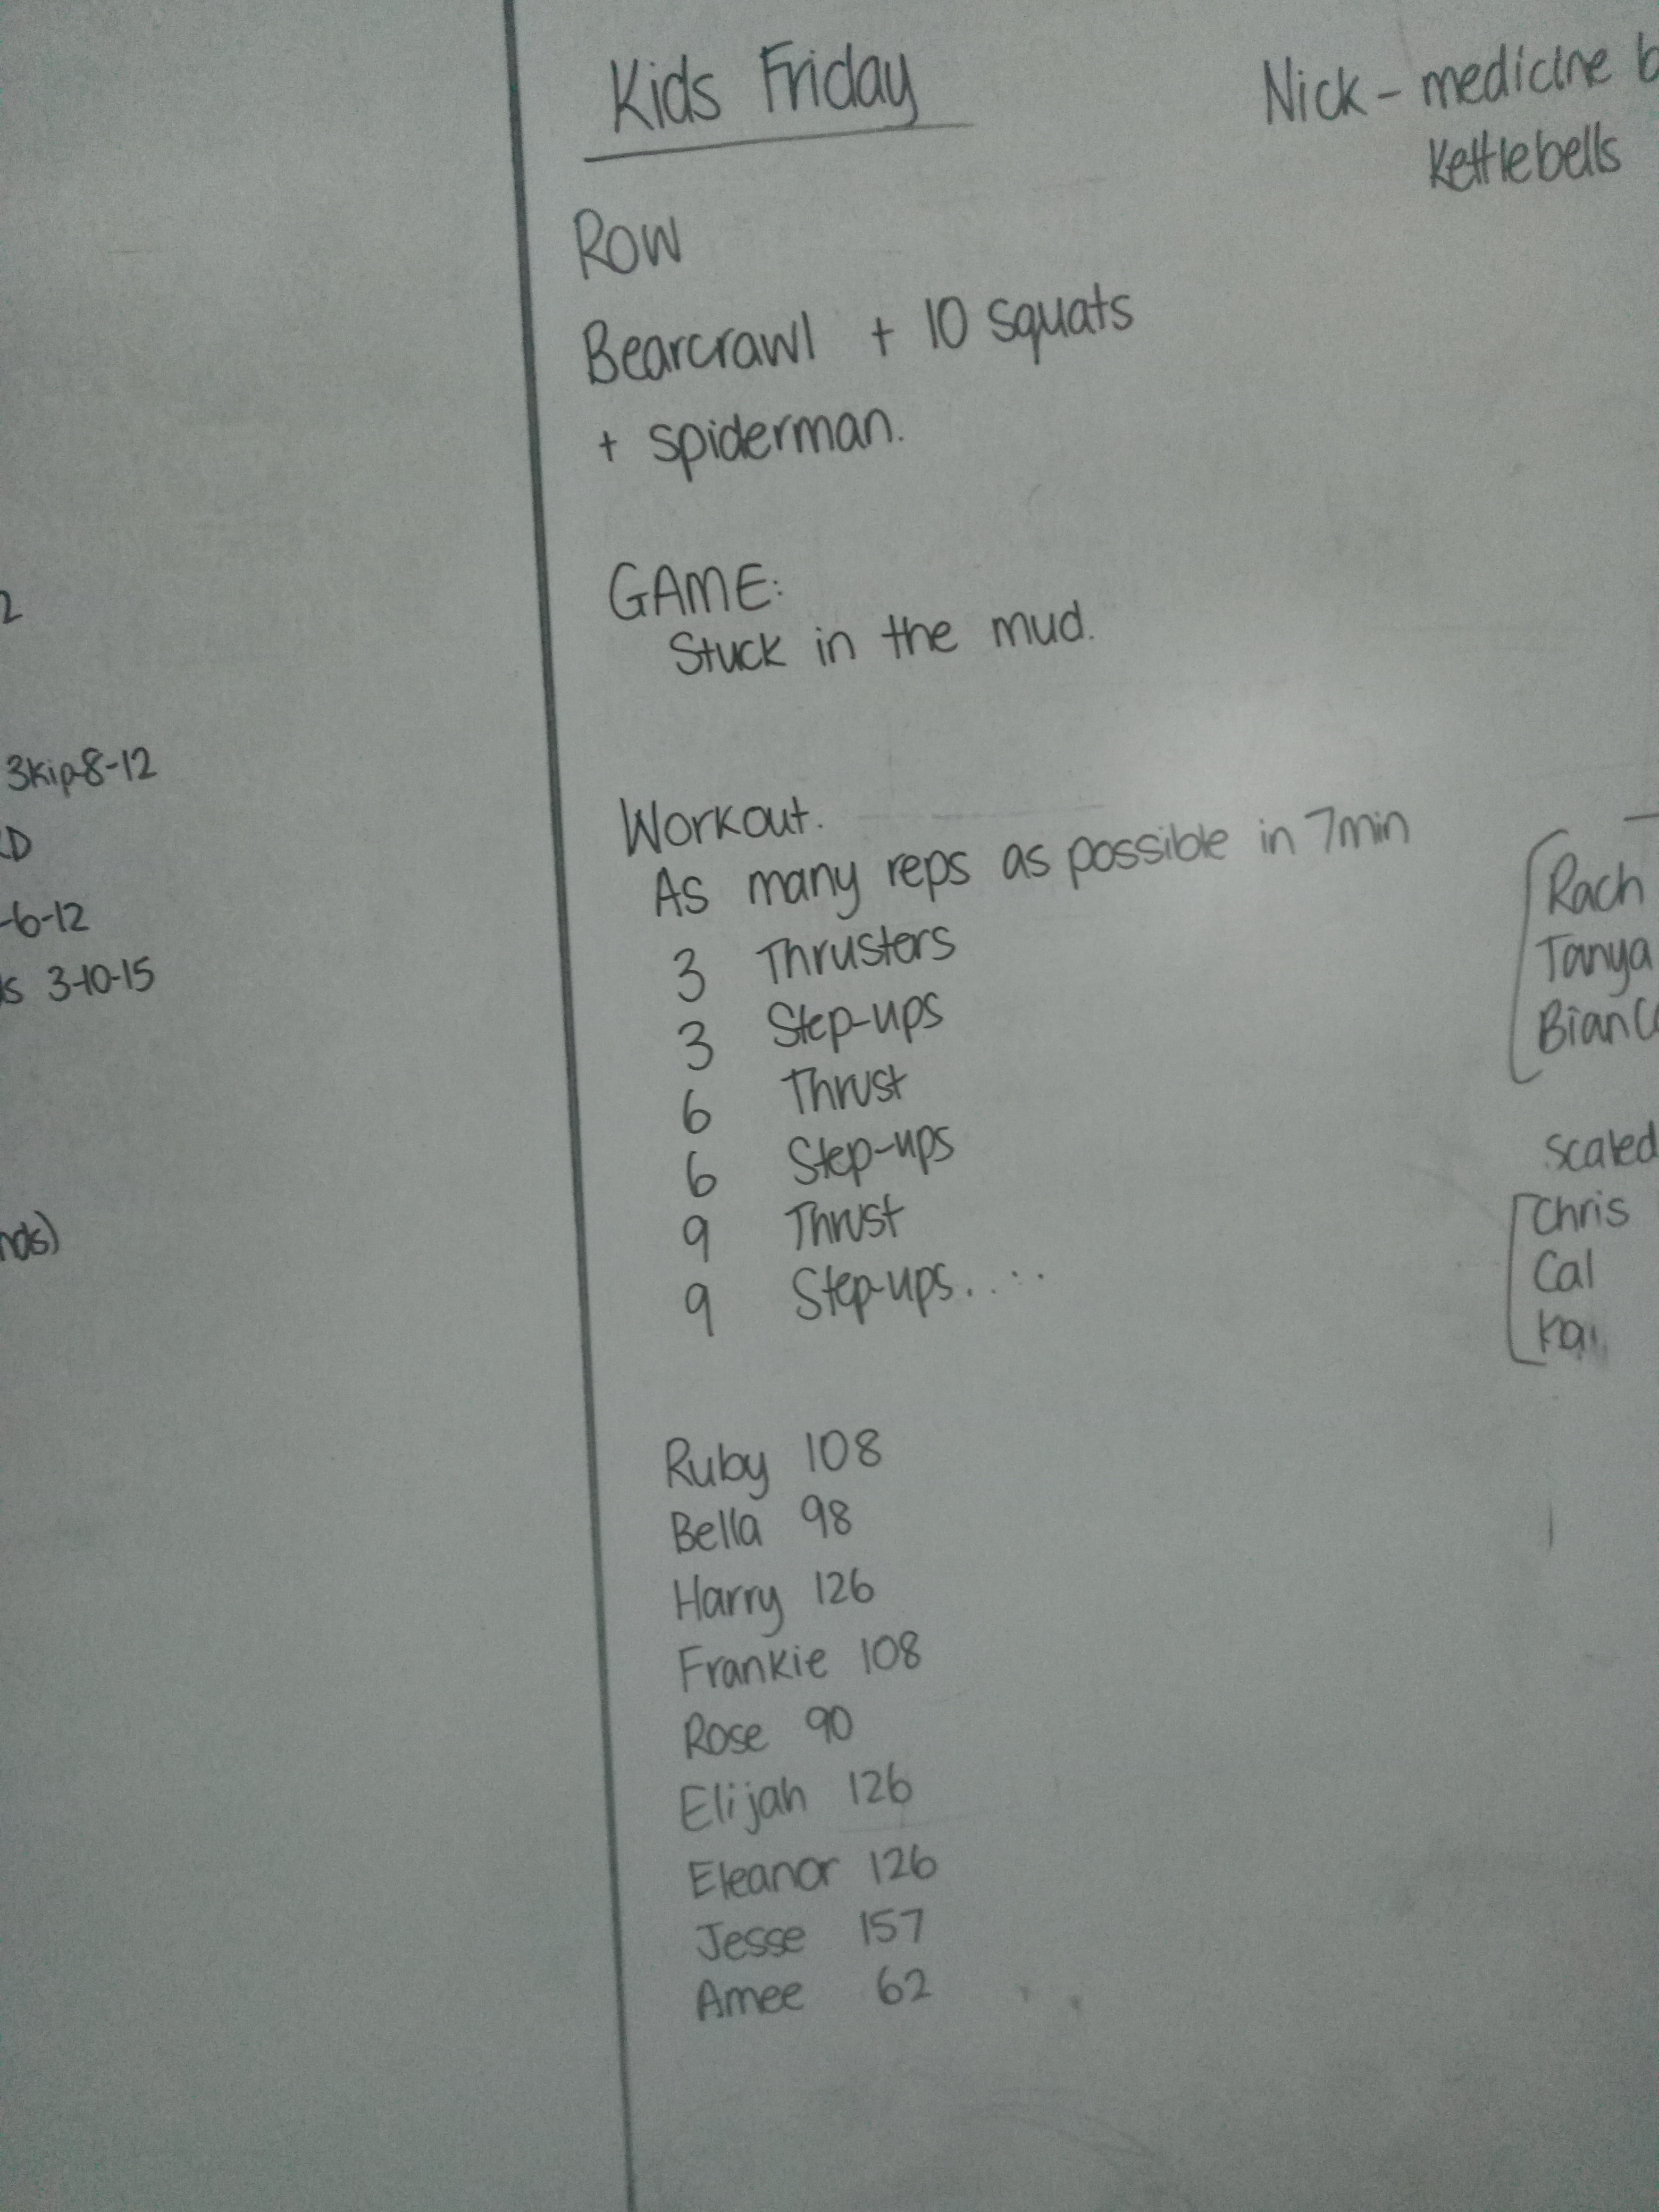 Kids Friday
Row
Bearcrawl + 10 squats
+ spiderman.
GAME:
Stuck in the mud.
Workout.
As many reps as possible in 7min
3 Thrusters
3 Step-ups
6 Thrust
6 Step-ups
9 Thrust
9 Step-ups.....
Ruby 108
Bella 98
Harry 126
Frankie 108
Rose 90
Elijah 126
Eleanor 126
Jesse 157
Amee 62
2
3kip-8-12
-6-12
3-10-15
Nick - medicine
Kettlebells
Rach
Tanya
scaled
Chris
Cal
Kai